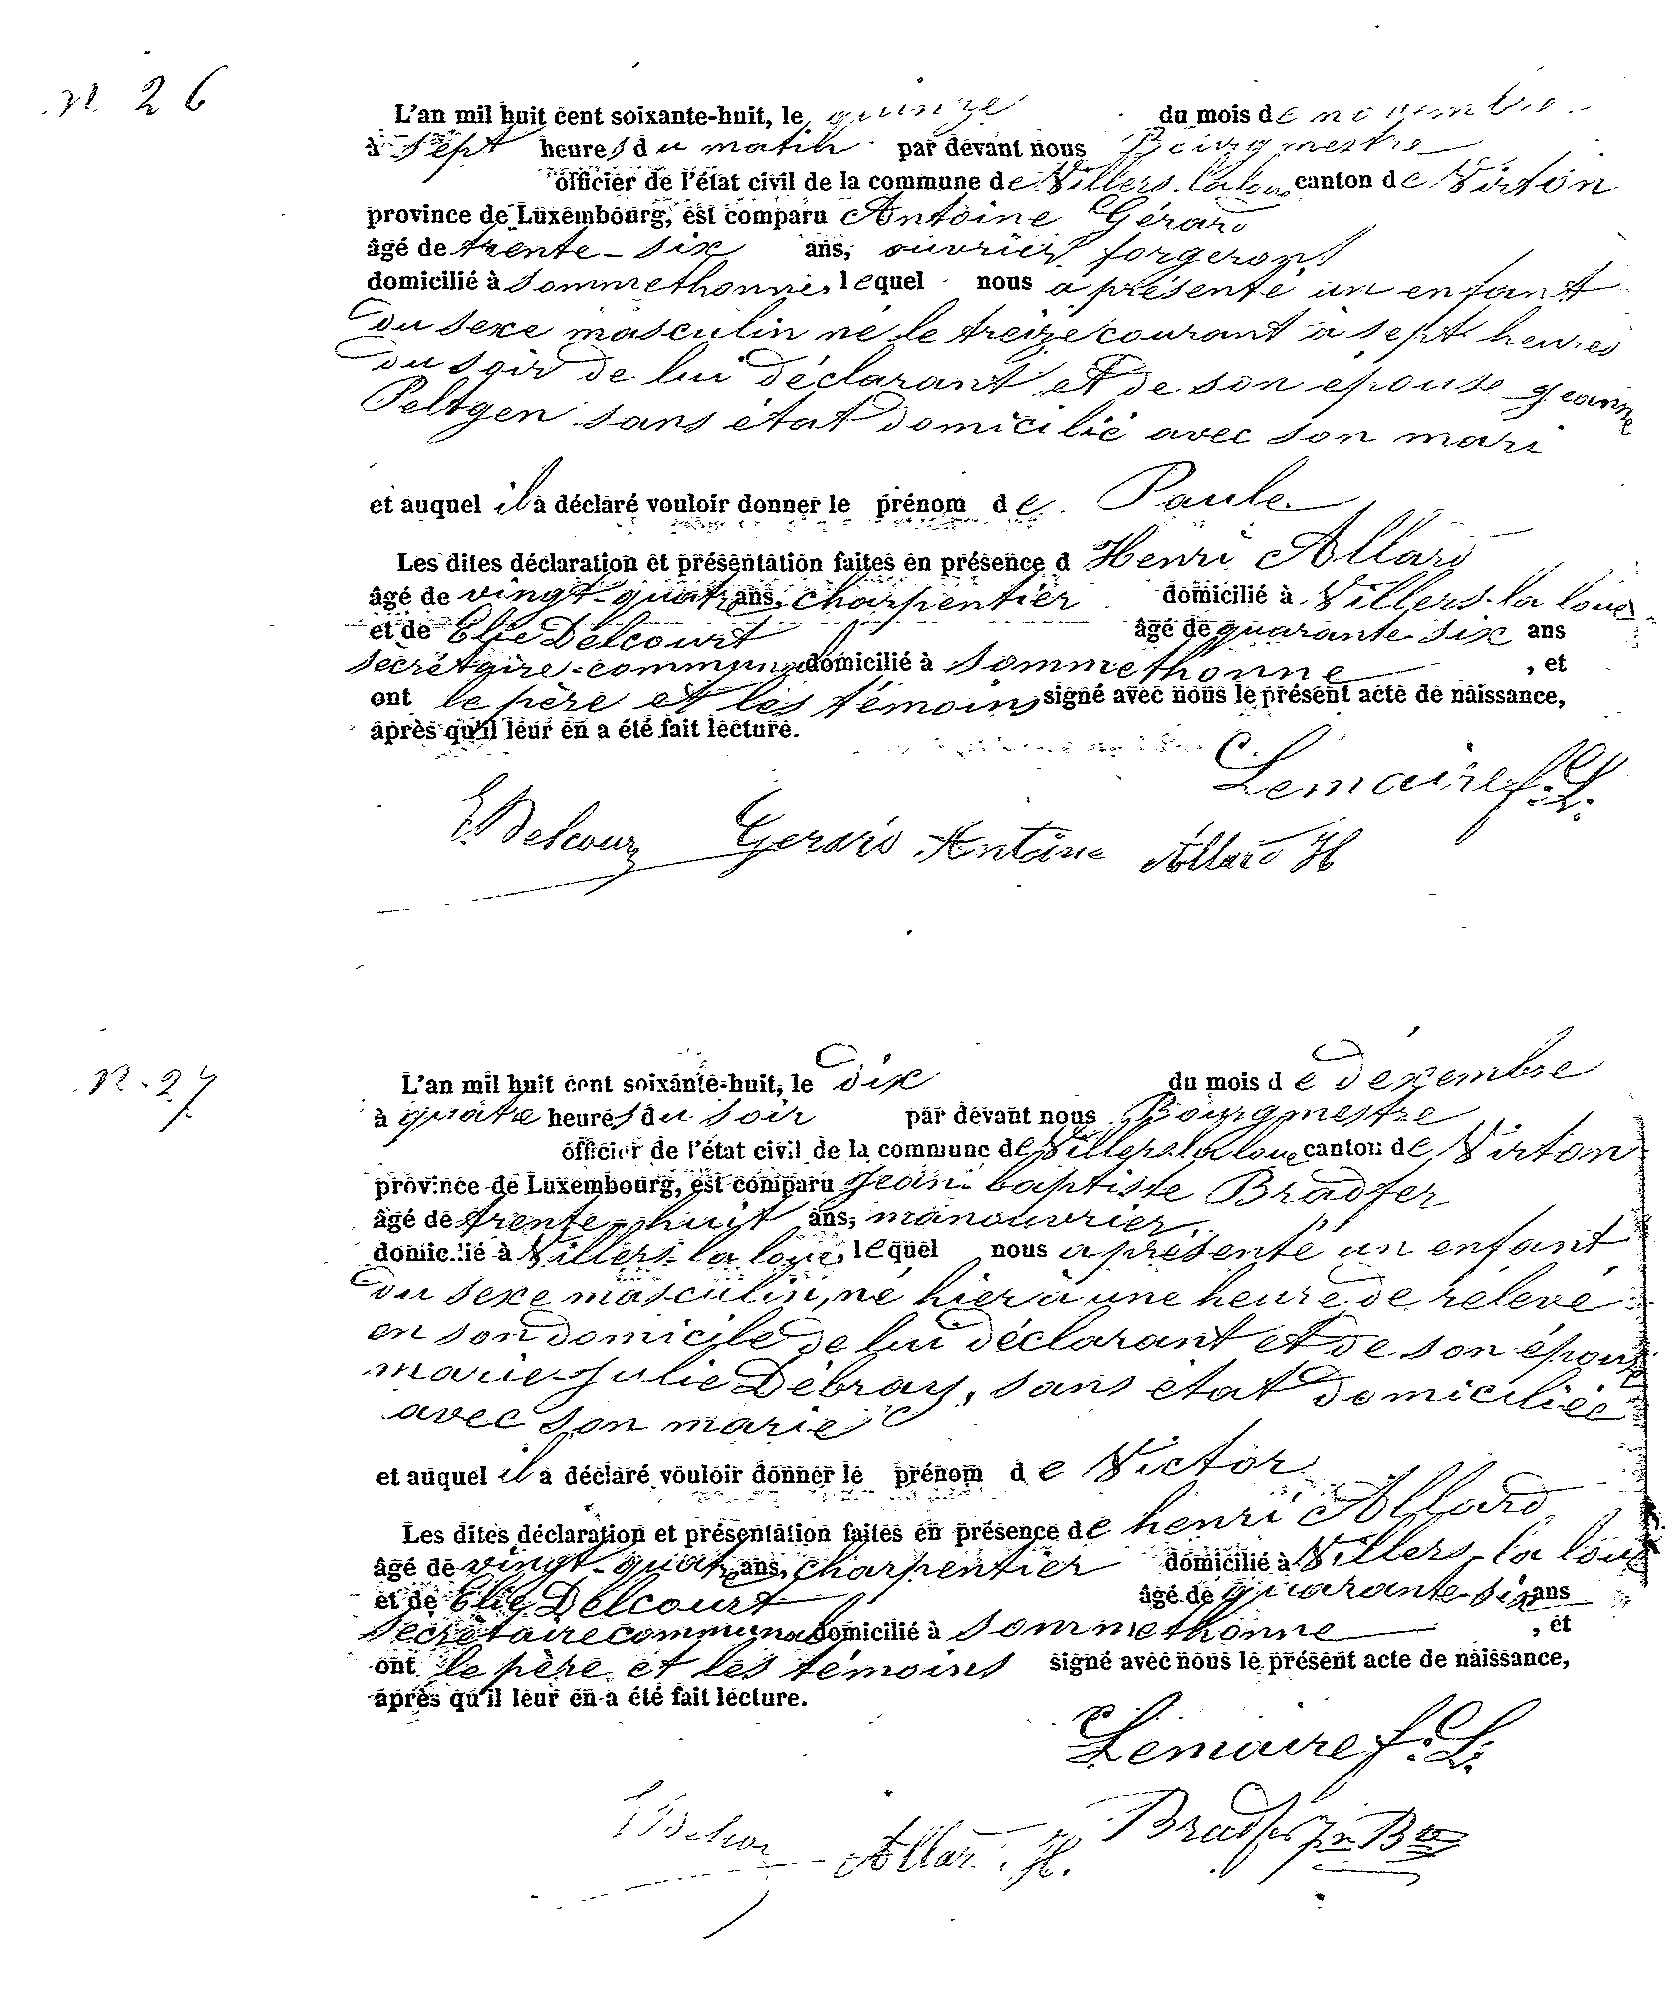 n. 26
L'an mil huit cent soixante-huit, le quinze du mois de novembre
à sept heures du matin par devant nous Bourgmestre
officier de l'état civil de la commune de Villers-la loue canton de Virton
province de Luxembourg, est comparu Antoine Gérard
âgé de trente-six ans, ouvrier forgeront
domicilié à Sommethonne, lequel nous a présenté un enfant
du sexe masculin né le treize courant à sept heures
du soir de lui déclarant et de son épouse Jeanne
Peltgen sans état domicilié avec son mari
et auquel il a déclaré vouloir donner le prénom de Paule
Les dites déclaration et présentation faites en présence d Henri Allard
âgé de vingt-quatre ans, charpentier domicilié à Villers-la loue
et de Elie Delcourt âgé de quarante-six ans
secrétaire-communal domicilié à Sommethonne, et
ont le père et les témoins signé avec nous le présent acte de naissance,
après qu'il leur en a été fait lecture.
Lemaire f. L.
E. Delcour Gerard Antoine Allard H
n. 27
L'an mil huit cent soixante-huit, le dix du mois de décembre
à quatre heures du soir par devant nous Bourgmestre
officier de l'état civil de la commune de Villers la loue canton de Virton
province de Luxembourg, est comparu Jean-baptiste Bradfer
âgé de trente-huit ans, manouvrier
domicilié à Villers-la loue, lequel nous a présenté un enfant
du sexe masculin, né hier à une heure de relevé
en son domicile de lui déclarant et de son épouse
marie-Julie Debray, sans état domiciliée
avec son marie
et auquel il a déclaré vouloir donner le prénom de Victor
Les dites déclaration et présentation faites en présence de henri Allard
âgé de vingt-quatre ans, charpentier domicilié à Villers-la loue
et de Elie Delcourt âgé de quarante-six ans
secrétaire communal domicilié à Sommethonne, et
ont le père et les témoins signé avec nous le présent acte de naissance,
après qu'il leur en a été fait lecture.
Lemaire f. L.
E Delcour Allard. H. Bradfer